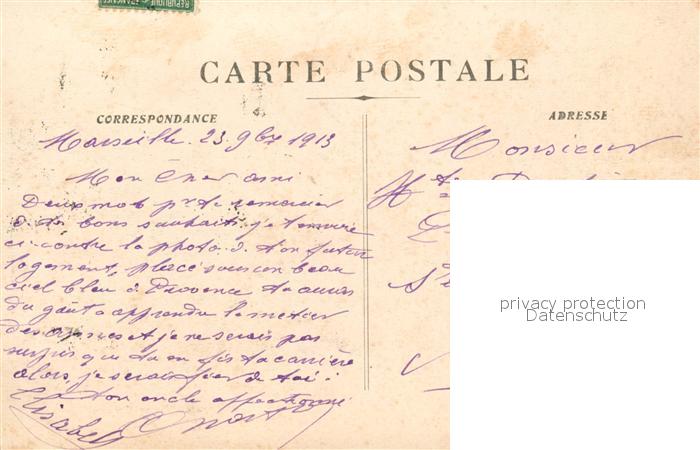 REPUBLIQUE FRANCAISE
CARTE POSTALE
CORRESPONDANCE
ADRESSE
Marseille. 23. 9bre 1913
Monsieur
Mon Cher ami
Deux mots pr te remercier
de tes bons souhaits, je t'envoie
ci-contre la photo de ton futur
logement, placé sous un beau
ciel bleu de Provence tu auras
du goût à apprendre le metier
des armes et je ne serais pas
surpris que tu en fis ta carrière
alors, je serais fier de toi!
ton oncle affectionné
Elisabeth
privacy protection
Datenschutz